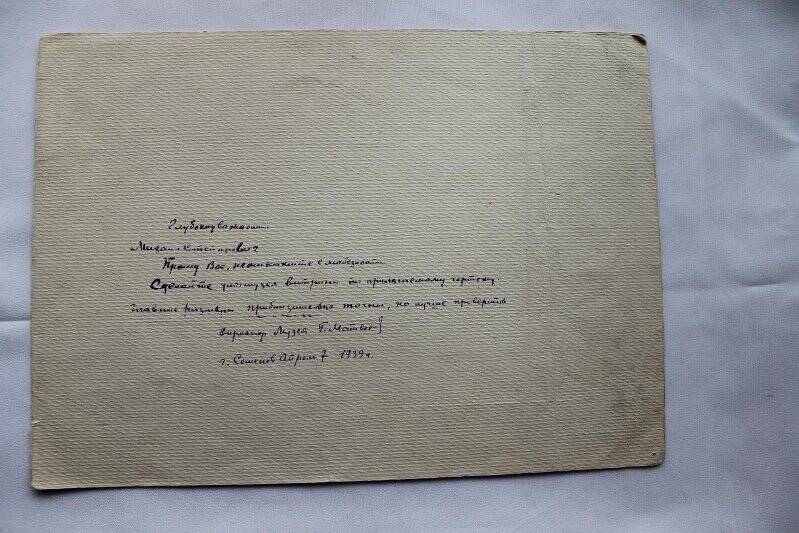 Глубокоуважаем.
Михаил Степанович
Прошу Вас, не откажите в любезности
Сделайте для музея витрины по прилагаемому чертежу
главные размеры приблизительно точны, но лучше проверить
Директор Музея Г. Матвеев
г. Семенов Апрель 7 1939 г.